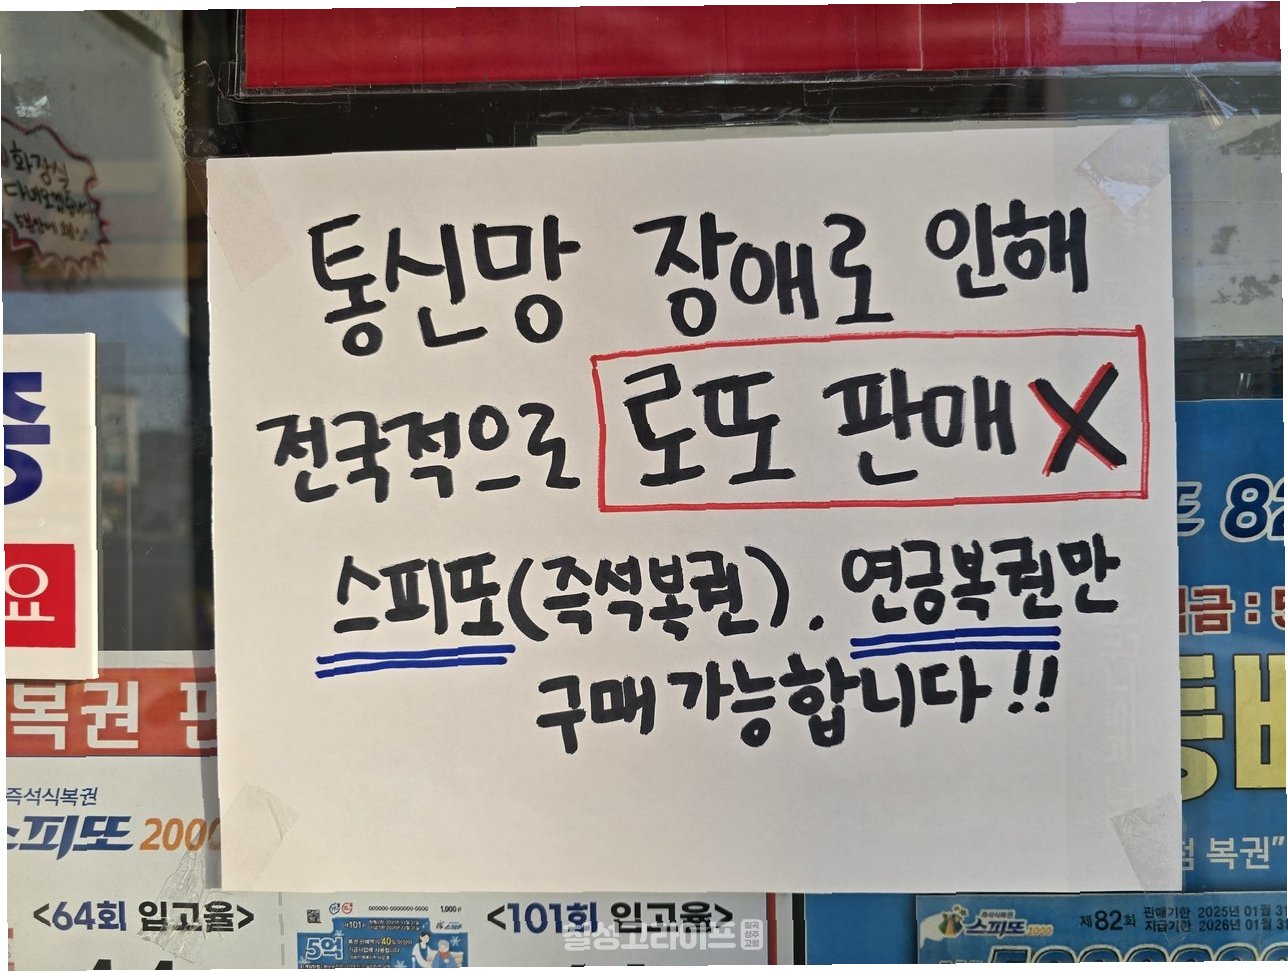 통신망 장애로 인해
전국적으로 로또 판매 X
스피또(즉석복권). 연금복권만
구매 가능합니다!!
화장실
요
복권 판
즉석식복권
스피또 2000
<64회 입고율>
<101회 입고율>
1,000원
5억
또 82
금 : 5
복권"
스피또 2000
제82회
판매기한 2025년 01월 31
지급기한 2026년 01월 31
달성고라이프